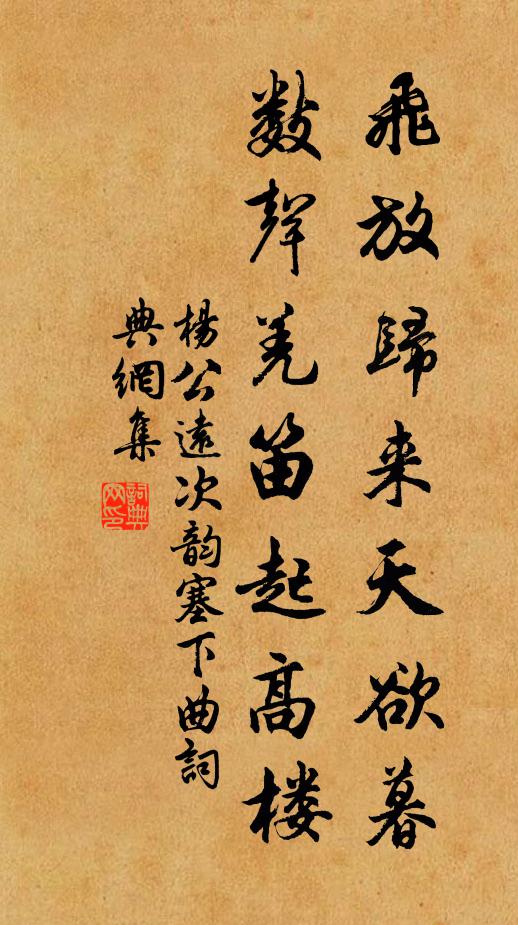 飛放歸来天欲暮
数聲羌笛起高楼
楊公遠次韵塞下曲詞
典網集
詞典網印